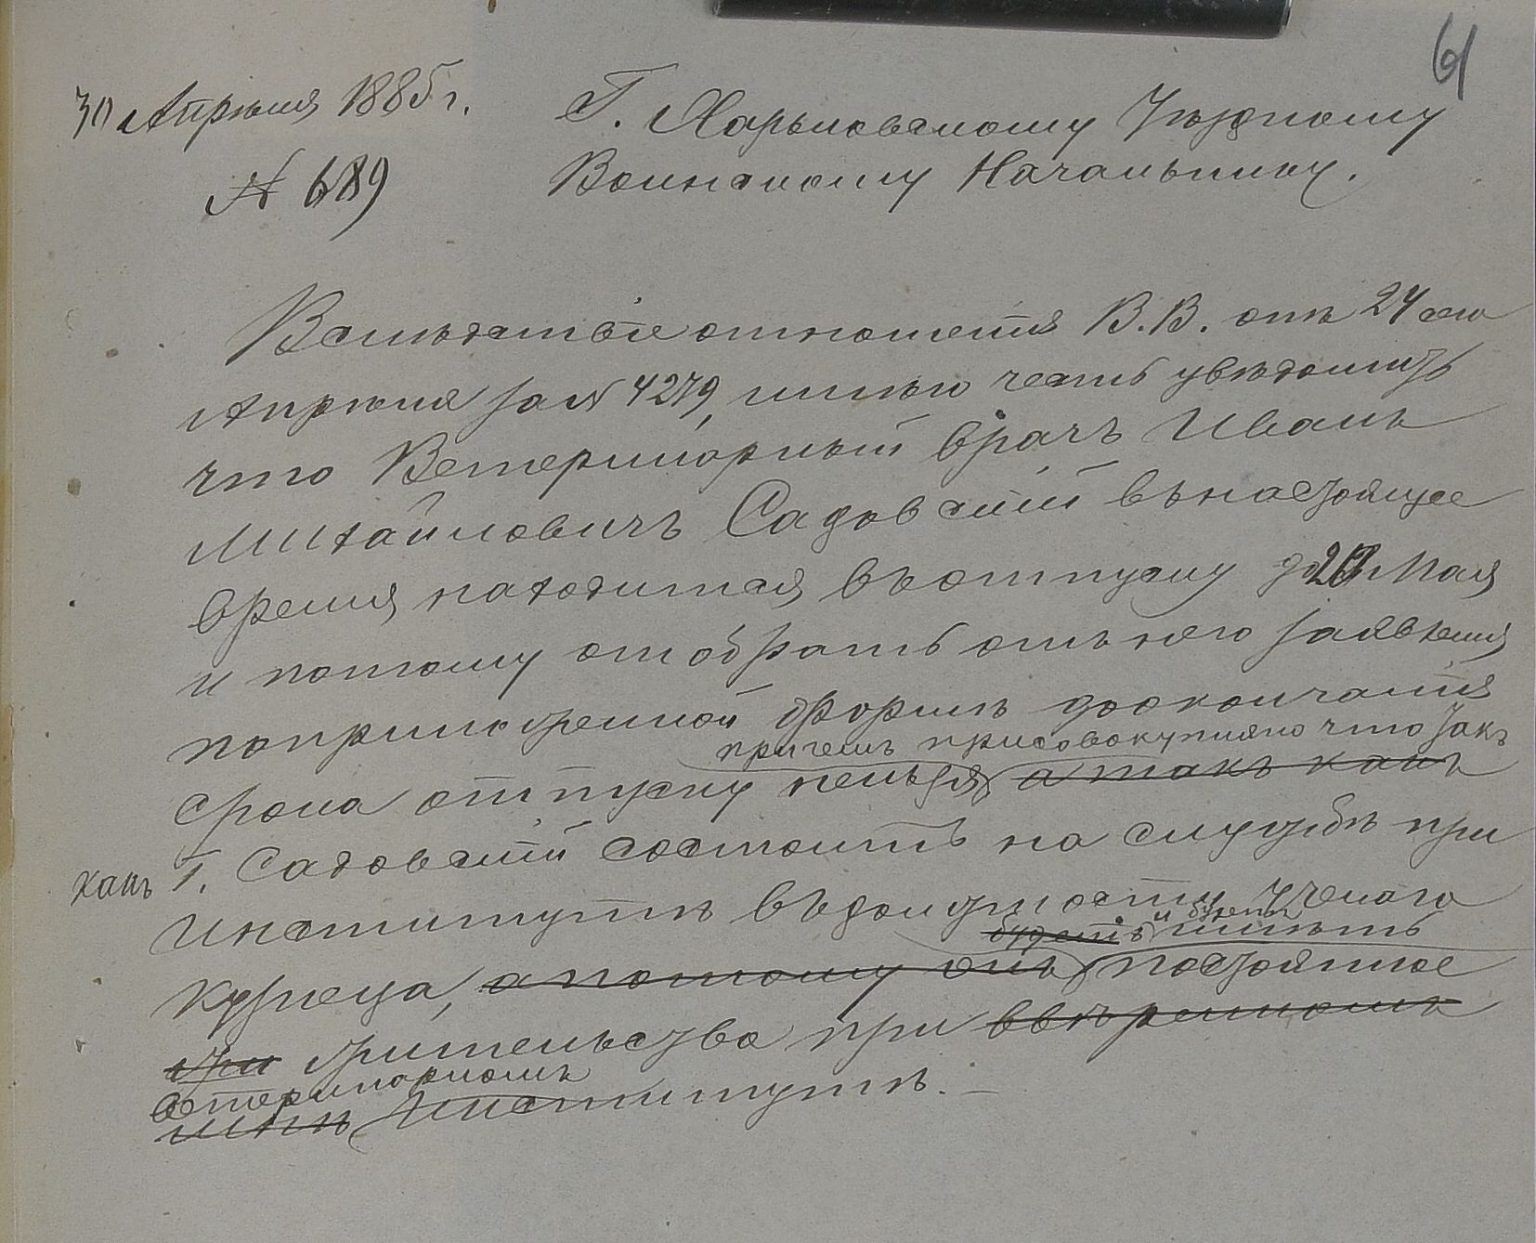 61
30 Апрѣля 1885 г.
№ 689
Г. Харьковскому Уѣздному
Воинскому Начальнику.
Вслѣдствіе отношенія В.В. отъ 24 сего
Апрѣля за № 4279, имѣю честь увѣдомить
что Ветеринарный врачъ Иванъ
Михайловичъ Садовскій въ настоящее
время находится въ отпуску до 20 Мая
и потому отобрать отъ него заявленія
по приложенной формѣ до окончанія
причемъ присовокупляю что
срока отпуску нельзя, а такъ какъ
какъ Г. Садовскій состоитъ на службѣ при
Институтѣ въ должности Ученаго
будетъ и будетъ имѣть
Кузнеца, а потому онъ постоянное
жи жительство при ввѣренномъ
ветеринарномъ
мнѣ Институтѣ. –